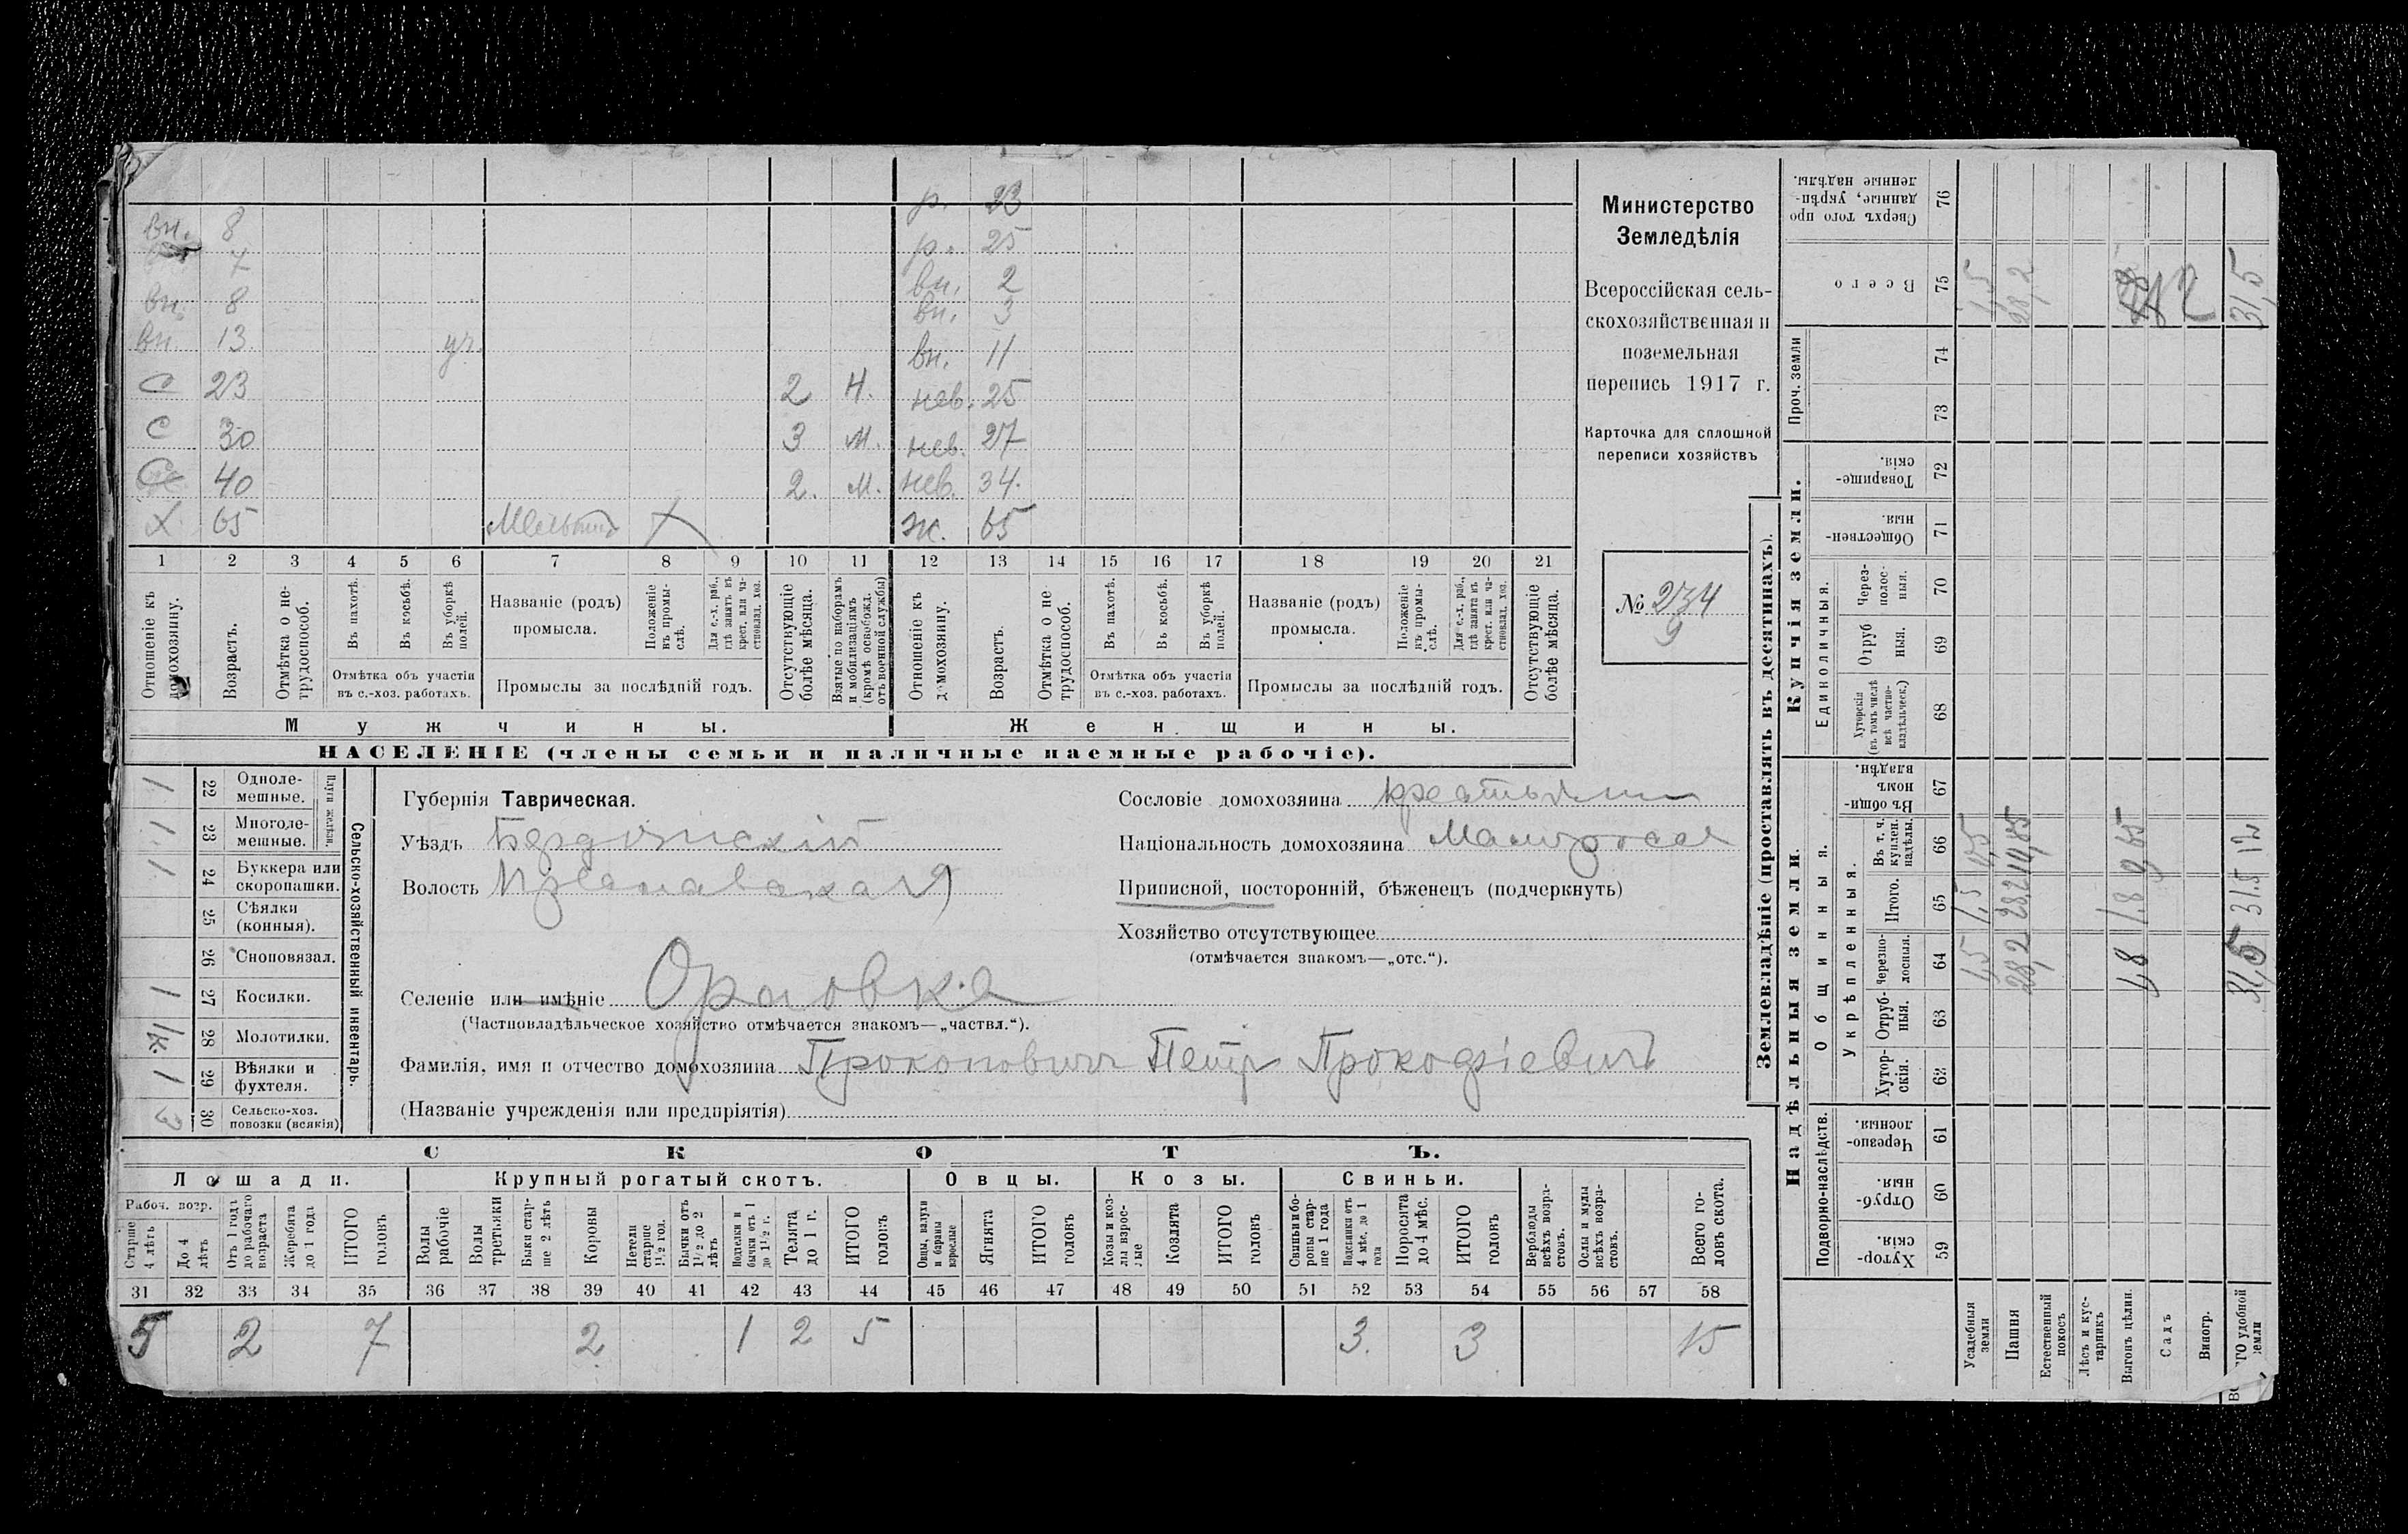 р. 23
вн. 8 р. 25
7 вн. 2
вн. 8 вн. 3
вн. 13 уч. вн. 11
С 23 2 Н. нев. 25
С 30 3 М. нев. 27
С 40 2. М. нев. 34.
Х. 65 Мельник Х ж. 65
1 2 3 4 5 6 7 8 9 10 11 12 13 14 15 16 17 18 19 20 21
Отношеніе къ домохозяину.
Возрастъ.
Отмѣтка о не-
трудоспособ.
Въ пахотѣ.
Въ косьбѣ.
Въ уборкѣ
полей.
Отмѣтка объ участіи
въ с.-хоз. работахъ.
Названіе (родъ)
промысла.
Положеніе
въ промы-
слѣ.
Для с.-х. раб.,
гдѣ занятъ въ
крест. или ча-
стновлад. хоз.
Промыслы за послѣдній годъ.
Отсутствующіе
болѣе мѣсяца.
Взятые по наборамъ
и мобилизаціямъ
(кромѣ освобожд.
отъ военной службы)
Отношеніе къ
домохозяину.
Возрастъ.
Отмѣтка о не
трудоспособ.
Въ пахотѣ.
Въ косьбѣ.
Въ уборкѣ
полей.
Отмѣтка объ участіи
въ с.-хоз. работахъ.
Названіе (родъ)
промысла.
Положеніе
въ промы-
слѣ.
Для с.-х. раб.,
гдѣ занята въ
крест. или ча-
стновлад. хоз.
Промыслы за послѣдній годъ.
Отсутствующіе
болѣе мѣсяца.
Мужчины.
Женщины.
НАСЕЛЕНІЕ (члены семьи и наличные наемные рабочіе).
Министерство
Земледѣлія
Всероссійская сель-
скохозяйственная и
поземельная
перепись 1917 г.
Карточка для сплошной
переписи хозяйствъ
№ 234
9
1 22 Одноле-
мешные.
1 23 Многоле-
мешные.
Плуги желѣзн.
1 24 Буккера или
скоропашки.
25 Сѣялки
(конныя).
26 Сноповязал.
1 27 Косилки.
28 Молотилки.
1 29 Вѣялки и
фухтеля.
3 30 Сельско-хоз.
повозки (всякія)
Сельско-хозяйственный инвентарь.
Губернія Таврическая.
Уѣздъ Бердянскій
Волость
Селеніе или имѣніе Орловка
(Частновладѣльческое хозяйство отмѣчается знакомъ—„частвл.“).
Фамилія, имя и отчество домохозяина Прокоповичъ Петръ Прокофіевичъ
(Названіе учрежденія или предпріятія)
Сословіе домохозяина крестьянин
Національность домохозяина Малоросъ
Приписной, посторонній, бѣженецъ (подчеркнуть)
Хозяйство отсутствующее
(отмѣчается знакомъ—„отс.“).
СКОТЪ.
Лошади. Крупный рогатый скотъ. Овцы. Козы. Свиньи.
Рабоч. возр.
Старше
4 лѣтъ
До 4
лѣтъ
Отъ 1 года
до рабочаго
возраста
Жеребята
до 1 года
ИТОГО
головъ
Волы
рабочіе
Волы
третьяки
Быки стар-
ше 2 лѣтъ
Коровы
Нетели
старше
1½ год.
Бычки отъ
1½ до 2
лѣтъ
Подтелки и
бычки отъ 1
до 1½ г.
Телята
до 1 г.
ИТОГО
головъ
Овцы, валухи
и бараны
взрослые
Ягнята
ИТОГО
головъ
Козы и коз-
лы взрос-
лые
Козлята
ИТОГО
головъ
Свиньи и бо-
ровы стар-
ше 1 года
Подсвинки отъ
4 мѣс. до 1
года
Поросята
до 4 мѣс.
ИТОГО
головъ
Верблюды
всѣхъ возра-
стовъ.
Ослы и мулы
всѣхъ возра-
стовъ.
Всего го-
ловъ скота.
31 32 33 34 35 36 37 38 39 40 41 42 43 44 45 46 47 48 49 50 51 52 53 54 55 56 57 58
5 2 7 2 1 2 5 3. 3 15
Землевладѣніе (проставлять въ десятинахъ).
Надѣльныя земли.
Купчія земли.
Проч. земли
Подворно-наслѣдств.
Общинныя.
Укрѣпленныя.
Единоличныя.
Сверхъ того про
данные, укрѣп-
ленные надѣлы.
76
Всего
75
74
73
Товарище-
скія.
72
Обществен-
ныя.
71
Через-
полос-
ныя.
70
Отруб
ныя.
69
Хуторскія
(въ томъ числѣ
всѣ частно-
владѣльческ.)
68
Въ общи-
номъ
владѣн.
67
Въ т. ч.
куплен.
надѣлы.
66
Итого.
65
Черезпо-
лосная.
64
Отруб-
ныя.
63
Хутор-
скія.
62
Черезпо-
лосныя.
61
Отруб-
ныя.
60
Хутор-
скія.
59
Усадебныя
земли
1,5 1,5 1,5
Пашня
28,2 28,2 28,2
Естественный
покосъ
Лѣсъ и кус-
тарникъ
Выгонъ цѣлин.
1,8 1,8
Садъ
Виногр.
ГО удобной
земли
31,5 31.5 12 31,5